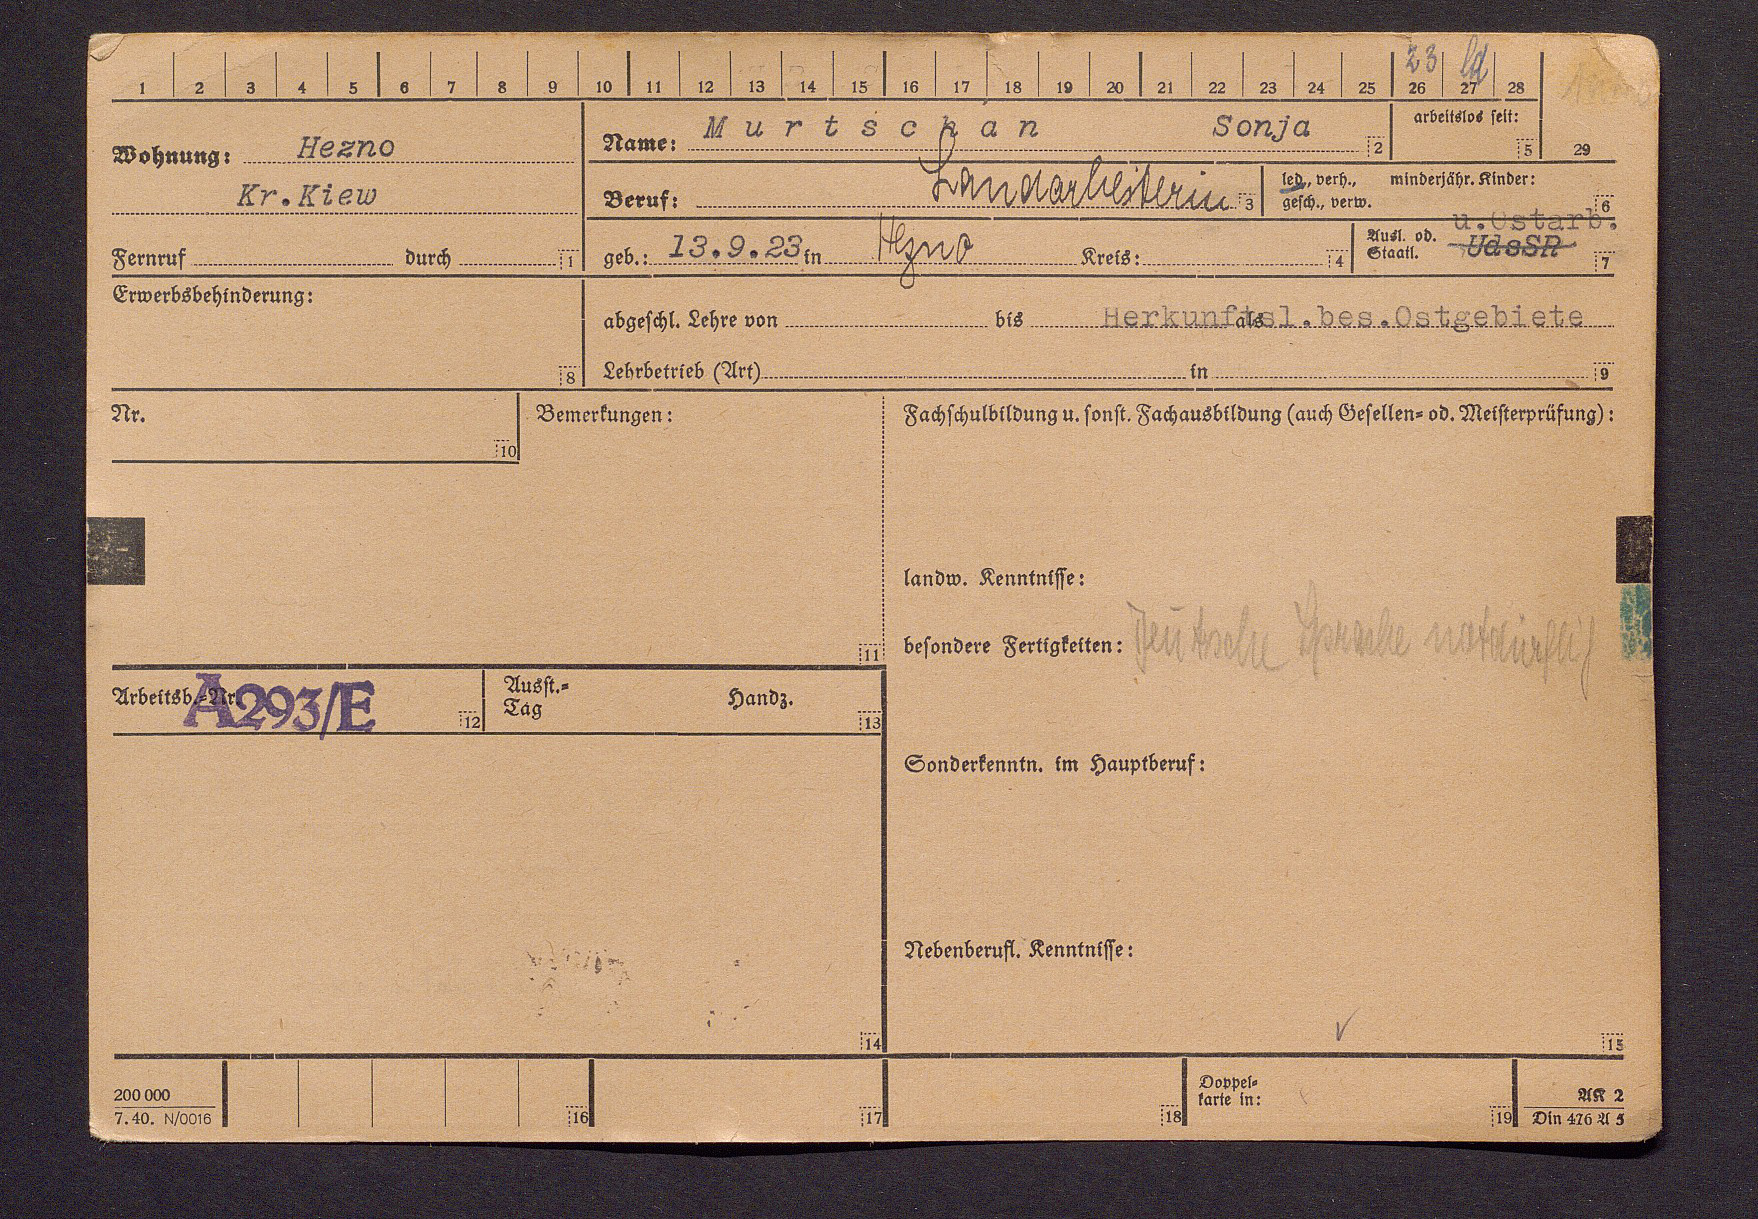 23 ld
1 2 3 4 5 6 7 8 9 10 11 12 13 14 15 16 17 18 19 20 21 22 23 24 25 26 27 28
Wohnung: Hezno
Kr.Kiew
Fernruf durch 1
Name: Murtschan Sonja 2
arbeitslos seit: 5
29
Beruf: Landarbeiterin 3
led., verh., minderjähr. Kinder:
gesch., verw. 6
geb.: 13.9.23 in Hezno Kreis: 4
u.Ostarb.
Ausl. od. UdSSR
Staatl. 7
Erwerbsbehinderung:
8
abgeschl. Lehre von bis als
Herkunftsl.bes.Ostgebiete
Lehrbetrieb (Art) in 9
Nr.
10
Bemerkungen:
11
Fachschulbildung u. sonst. Fachausbildung (auch Gesellen- od. Meisterprüfung):
landw. Kenntnisse:
besondere Fertigkeiten: Deutsche Sprache notdürftig
Arbeitsb.-Nr. A293/E 12
Ausst.-
Tag Handz. 13
Sonderkenntn. im Hauptberuf:
Nebenberufl. Kenntnisse:
14 15
200 000
7. 40. N/0016
16 17 18
Doppel-
karte in: 19
AK 2
Din 476 A 5